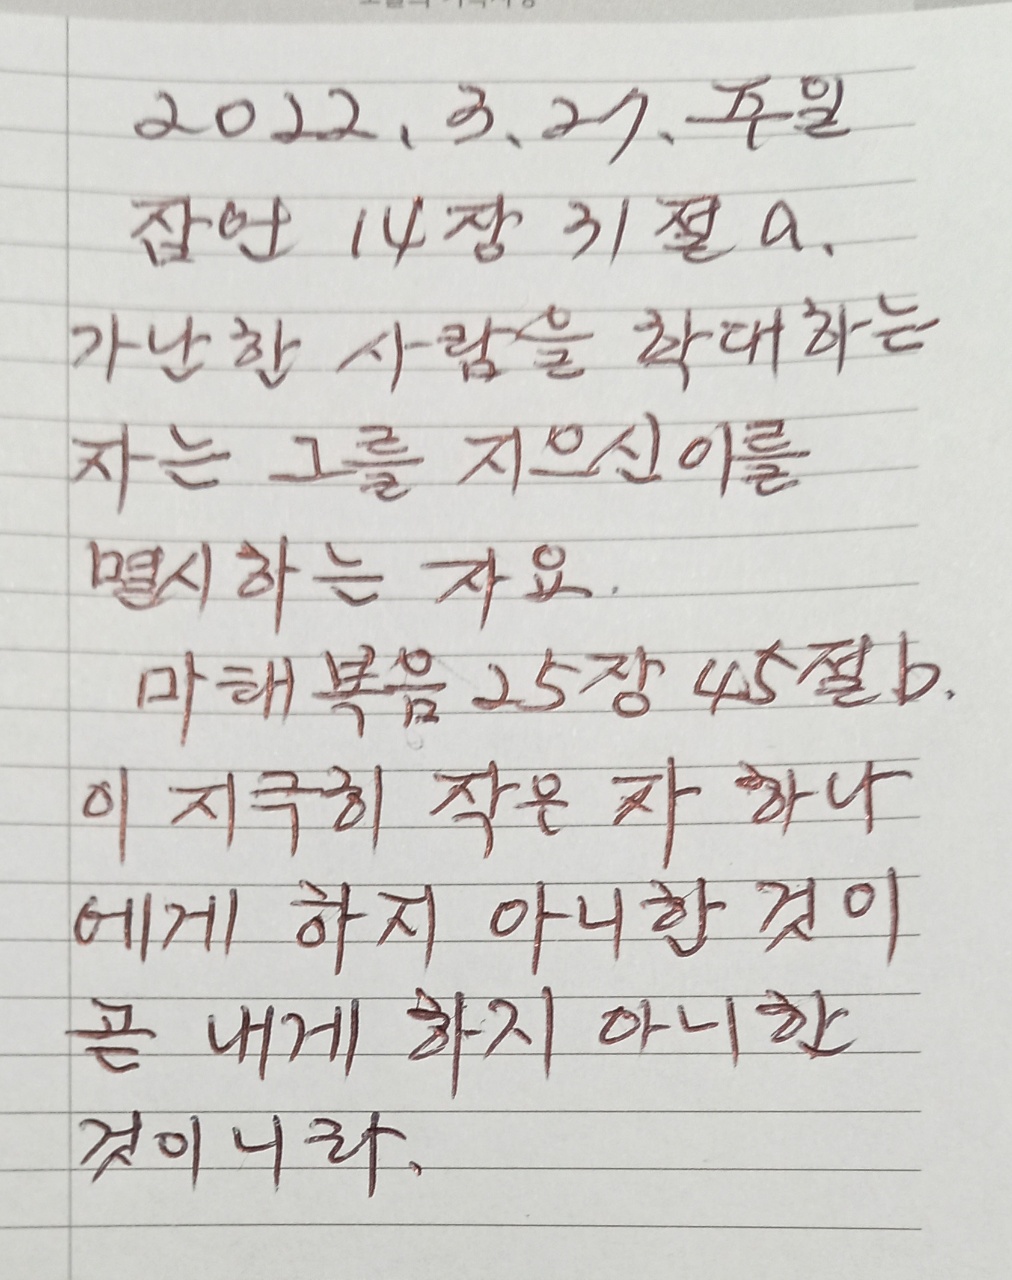 2022. 3. 27. 주일
잠언 14장 31절 a.
가난한 사람을 학대하는
자는 그를 지으신 이를
멸시하는 자요.
마태복음 25장 45절 b.
이 지극히 작은 자 하나
에게 하지 아니한 것이
곧 내게 하지 아니한
것이니라.